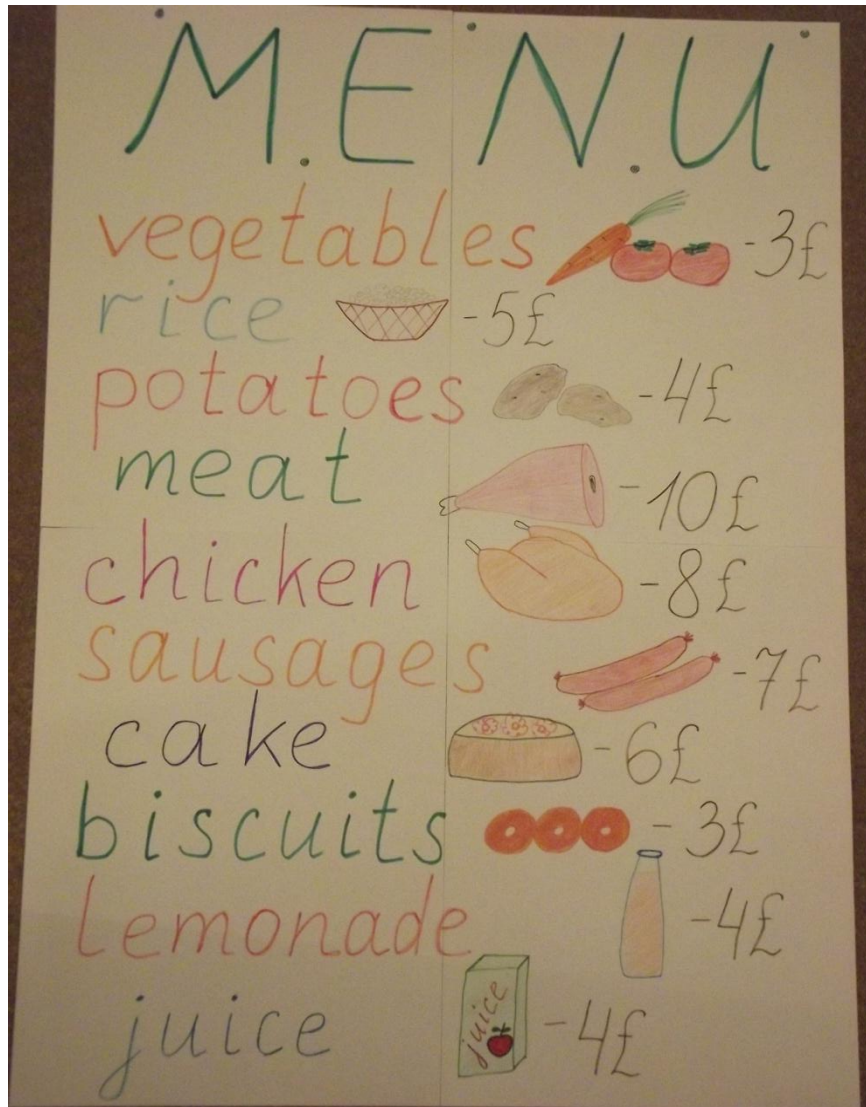 MENU
vegetables -3£
rice -5£
potatoes -4£
meat -10£
chicken -8£
sausages -7£
cake -6£
biscuits -3£
lemonade -4£
juice juice -4£